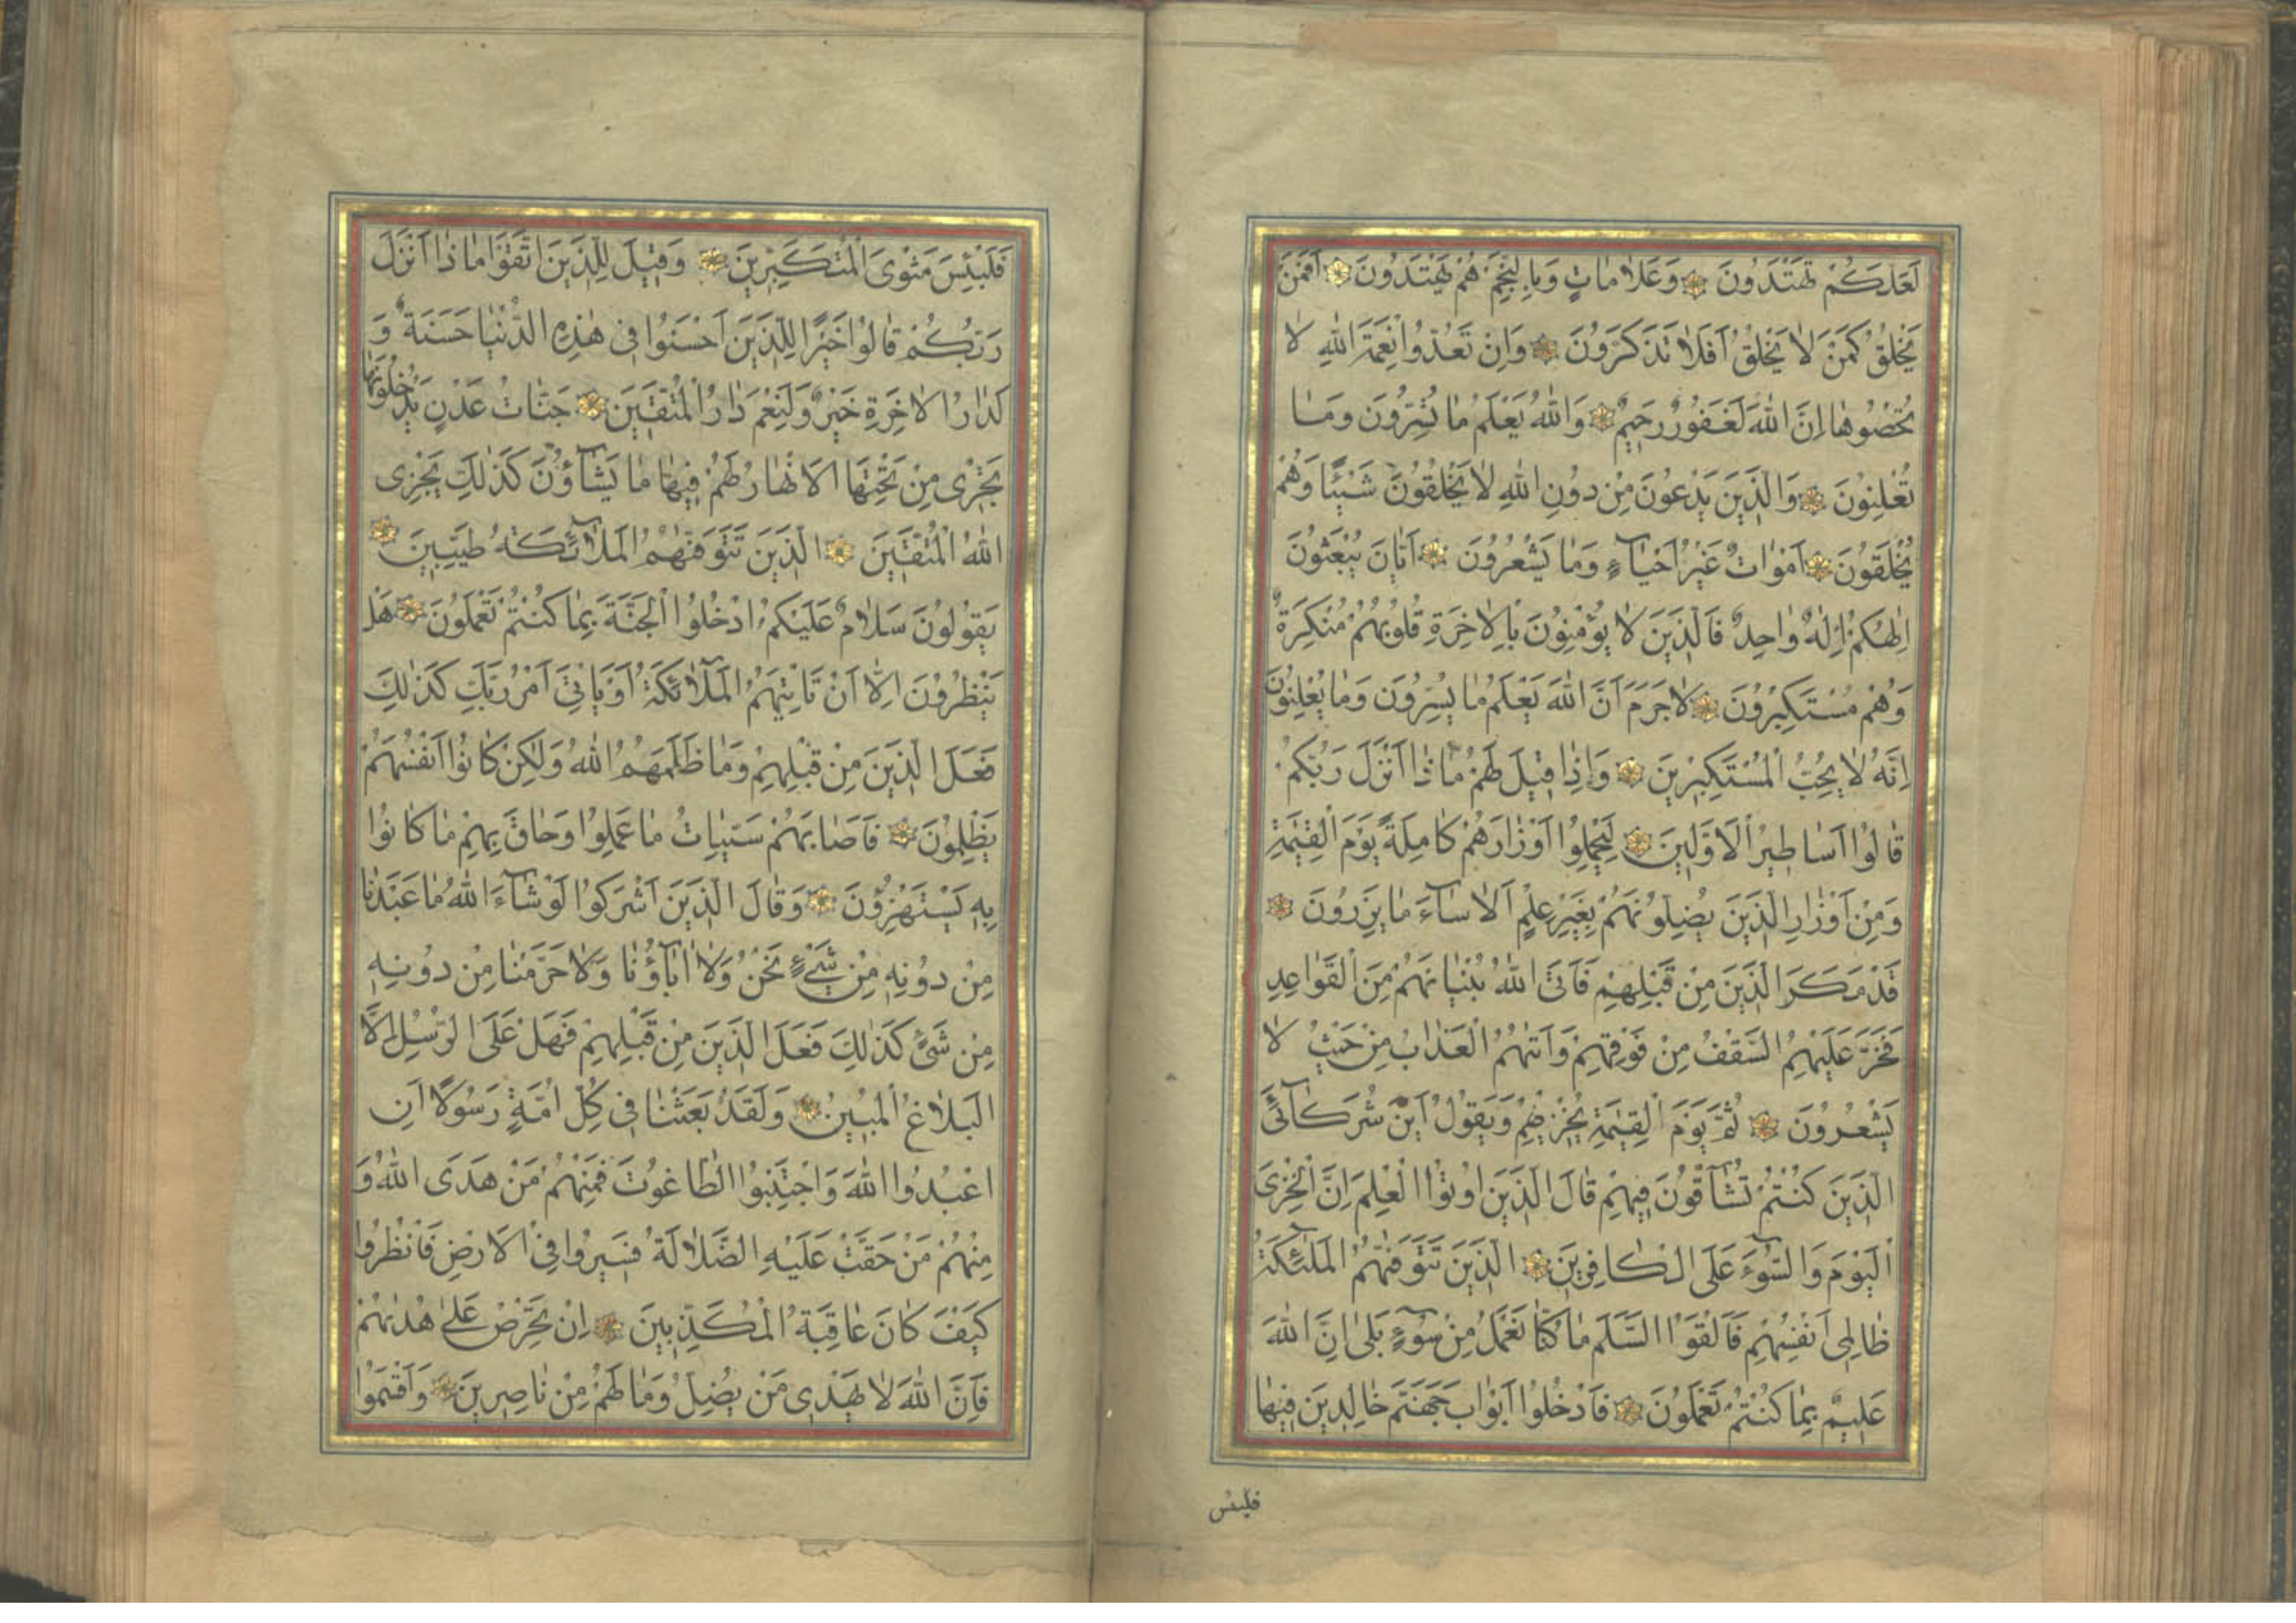 لَعَلَّكُمْ تَهْتَدُونَ وَعَلَامَاتٍ وَبِالنَّجْمِ هُمْ يَهْتَدُونَ اَفَمَنْ
يَخْلُقُ كَمَنْ لَا يَخْلُقُ اَفَلَا تَذَكَّرُونَ وَاِنْ تَعُدُّوا نِعْمَةَ اللّٰهِ لَا
تُحْصُوهَا اِنَّ اللّٰهَ لَغَفُورٌ رَحِيمٌ وَاللّٰهُ يَعْلَمُ مَا تُسِرُّونَ وَمَا
تُعْلِنُونَ وَالَّذِينَ يَدْعُونَ مِنْ دُونِ اللّٰهِ لَا يَخْلُقُونَ شَيْئًا وَهُمْ
يُخْلَقُونَ اَمْوَاتٌ غَيْرُ اَحْيَآءٍ وَمَا يَشْعُرُونَ اَيَّانَ يُبْعَثُونَ
اِلٰهُكُمْ اِلٰهٌ وَاحِدٌ فَالَّذِينَ لَا يُؤْمِنُونَ بِالْاٰخِرَةِ قُلُوبُهُمْ مُنْكِرَةٌ
وَهُمْ مُسْتَكْبِرُونَ لَا جَرَمَ اَنَّ اللّٰهَ يَعْلَمُ مَا يُسِرُّونَ وَمَا يُعْلِنُونَ
اِنَّهُ لَا يُحِبُّ الْمُسْتَكْبِرِينَ وَاِذَا قِيلَ لَهُمْ مَا ذَا اَنْزَلَ رَبُّكُمْ
قَالُوا اَسَاطِيرُ الْاَوَّلِينَ لِيَحْمِلُوا اَوْزَارَهُمْ كَامِلَةً يَوْمَ الْقِيٰمَةِ
وَمِنْ اَوْزَارِ الَّذِينَ يُضِلُّونَهُمْ بِغَيْرِ عِلْمٍ اَلَا سَآءَ مَا يَزِرُونَ
قَدْ مَكَرَ الَّذِينَ مِنْ قَبْلِهِمْ فَاَتَى اللّٰهُ بُنْيَانَهُمْ مِنَ الْقَوَاعِدِ
فَخَرَّ عَلَيْهِمُ السَّقْفُ مِنْ فَوْقِهِمْ وَاَتٰهُمُ الْعَذَابُ مِنْ حَيْثُ لَا
يَشْعُرُونَ ثُمَّ يَوْمَ الْقِيٰمَةِ يُخْزِيهِمْ وَيَقُولُ اَيْنَ شُرَكَآئِيَ
الَّذِينَ كُنْتُمْ تُشَآقُّونَ فِيهِمْ قَالَ الَّذِينَ اُوتُوا الْعِلْمَ اِنَّ الْخِزْيَ
الْيَوْمَ وَالسُّوٓءَ عَلَى الْكَافِرِينَ الَّذِينَ تَتَوَفّٰهُمُ الْمَلٰٓئِكَةُ
ظَالِمِي اَنْفُسِهِمْ فَاَلْقَوُا السَّلَمَ مَا كُنَّا نَعْمَلُ مِنْ سُوٓءٍ بَلٰى اِنَّ اللّٰهَ
عَلِيمٌ بِمَا كُنْتُمْ تَعْمَلُونَ فَادْخُلُوا اَبْوَابَ جَهَنَّمَ خَالِدِينَ فِيهَا
فلبئس
فَلَبِئْسَ مَثْوَى الْمُتَكَبِّرِينَ وَقِيلَ لِلَّذِينَ اتَّقَوْا مَا ذَا اَنْزَلَ
رَبُّكُمْ قَالُوا خَيْرًا لِلَّذِينَ اَحْسَنُوا فِي هٰذِهِ الدُّنْيَا حَسَنَةٌ وَ
لَدَارُ الْاٰخِرَةِ خَيْرٌ وَلَنِعْمَ دَارُ الْمُتَّقِينَ جَنَّاتُ عَدْنٍ يَدْخُلُونَهَا
تَجْرِي مِنْ تَحْتِهَا الْاَنْهَارُ لَهُمْ فِيهَا مَا يَشَآؤُنَ كَذٰلِكَ يَجْزِي
اللّٰهُ الْمُتَّقِينَ الَّذِينَ تَتَوَفّٰهُمُ الْمَلَآئِكَةُ طَيِّبِينَ
يَقُولُونَ سَلَامٌ عَلَيْكُمُ ادْخُلُوا الْجَنَّةَ بِمَا كُنْتُمْ تَعْمَلُونَ هَلْ
يَنْظُرُونَ اِلَّا اَنْ تَاْتِيَهُمُ الْمَلَآئِكَةُ اَوْ يَاْتِيَ اَمْرُ رَبِّكَ كَذٰلِكَ
فَعَلَ الَّذِينَ مِنْ قَبْلِهِمْ وَمَا ظَلَمَهُمُ اللّٰهُ وَلٰكِنْ كَانُوا اَنْفُسَهُمْ
يَظْلِمُونَ فَاَصَابَهُمْ سَيِّئَاتُ مَا عَمِلُوا وَحَاقَ بِهِمْ مَا كَانُوا
بِهِ يَسْتَهْزِؤُنَ وَقَالَ الَّذِينَ اَشْرَكُوا لَوْ شَآءَ اللّٰهُ مَا عَبَدْنَا
مِنْ دُونِهِ مِنْ شَيْءٍ نَحْنُ وَلَا اٰبَآؤُنَا وَلَا حَرَّمْنَا مِنْ دُونِهِ
مِنْ شَيْءٍ كَذٰلِكَ فَعَلَ الَّذِينَ مِنْ قَبْلِهِمْ فَهَلْ عَلَى الرُّسُلِ اِلَّا
الْبَلَاغُ الْمُبِينُ وَلَقَدْ بَعَثْنَا فِي كُلِّ اُمَّةٍ رَسُولًا اَنِ
اعْبُدُوا اللّٰهَ وَاجْتَنِبُوا الطَّاغُوتَ فَمِنْهُمْ مَنْ هَدَى اللّٰهُ وَ
مِنْهُمْ مَنْ حَقَّتْ عَلَيْهِ الضَّلَالَةُ فَسِيرُوا فِي الْاَرْضِ فَانْظُرُوا
كَيْفَ كَانَ عَاقِبَةُ الْمُكَذِّبِينَ اِنْ تَحْرِصْ عَلٰى هُدٰيهُمْ
فَاِنَّ اللّٰهَ لَا يَهْدِي مَنْ يُضِلُّ وَمَا لَهُمْ مِنْ نَاصِرِينَ وَاَقْسَمُوا